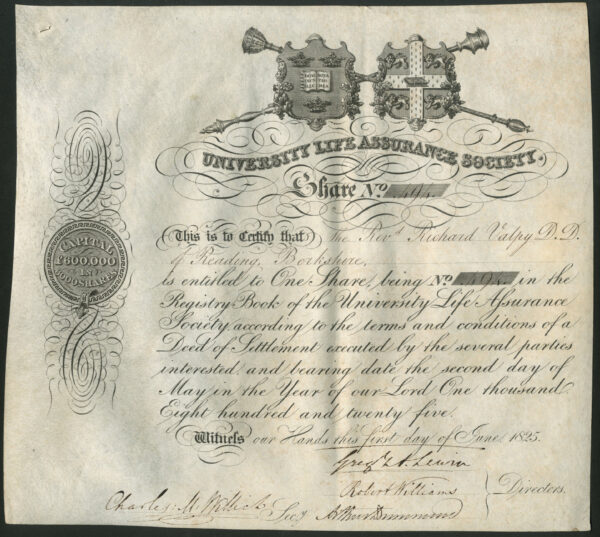 UNIVERSITY LIFE ASSURANCE SOCIETY.
Share No. 494.
This is to Certify that the Revd. Richard Valpy D.D.
of Reading, Berkshire,
is entitled to One Share, being No. 494 in the
Registry Book of the University Life Assurance
Society according to the terms and conditions of a
Deed of Settlement executed by the several parties
interested and bearing date the second day of
May in the Year of our Lord One thousand
Eight hundred and twenty five.
Witness our Hands this first day of June 1825.
CAPITAL
£600,000
IN
6000 SHARES
Robert Williams
Directors.
Charles M. Willich Secy